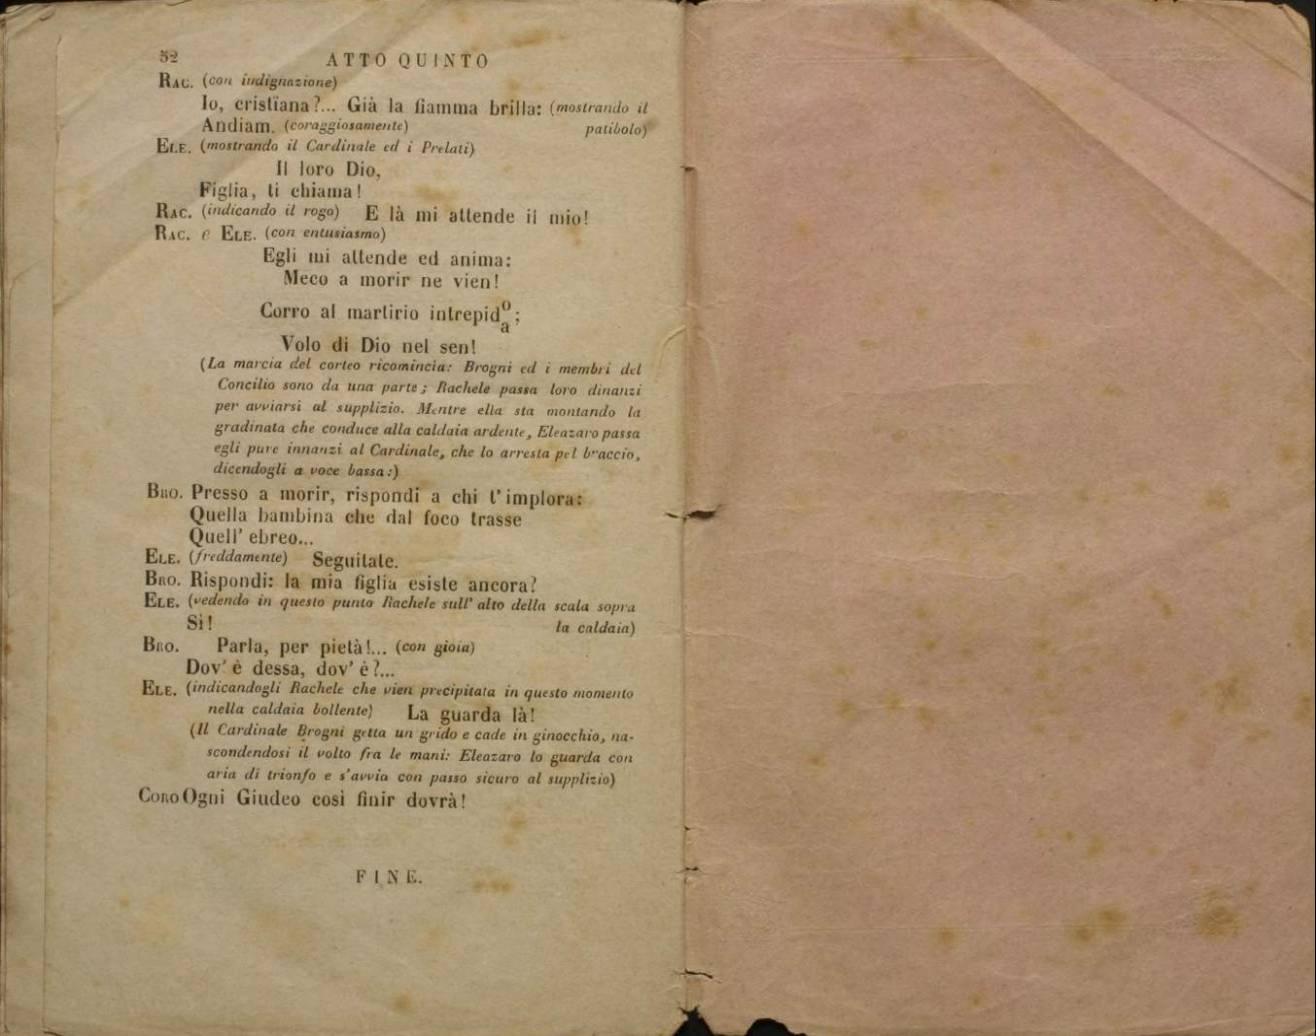 52 ATTO QUINTO
RAC. (con indignazione)
Io, cristiana?... Già la fiamma brilla: (mostrando il
Andiam. (coraggiosamente) patibolo)
ELE. (mostrando il Cardinale ed i Prelati)
Il loro Dio,
Figlia, ti chiama!
RAC. (indicando il rogo) E là mi attende il mio!
RAC. e ELE. (con entusiasmo)
Egli mi attende ed anima:
Meco a morir ne vien!
Corro al martirio intrepid o/a ;
Volo di Dio nel sen!
(La marcia del corteo ricomincia: Brogni ed i membri del
Concilio sono da una parte; Rachele passa loro dinanzi
per avviarsi al supplizio. Mentre ella sta montando la
gradinata che conduce alla caldaia ardente, Eleazaro passa
egli pure innanzi al Cardinale, che lo arresta pel braccio,
dicendogli a voce bassa:)
BRO. Presso a morir, rispondi a chi t'implora:
Quella bambina che dal foco trasse
Quell' ebreo...
ELE. (freddamente) Seguitate.
BRO. Rispondi: la mia figlia esiste ancora?
ELE. (vedendo in questo punto Rachele sull' alto della scala sopra
Sì! la caldaia)
BRO. Parla, per pietà!... (con gioia)
Dov' è dessa, dov' è?...
ELE. (indicandogli Rachele che vien precipitata in questo momento
nella caldaia bollente) La guarda là!
(Il Cardinale Brogni getta un grido e cade in ginocchio, na-
scondendosi il volto fra le mani: Eleazaro lo guarda con
aria di trionfo e s'avvia con passo sicuro al supplizio)
CORO Ogni Giudeo così finir dovrà!
FINE.